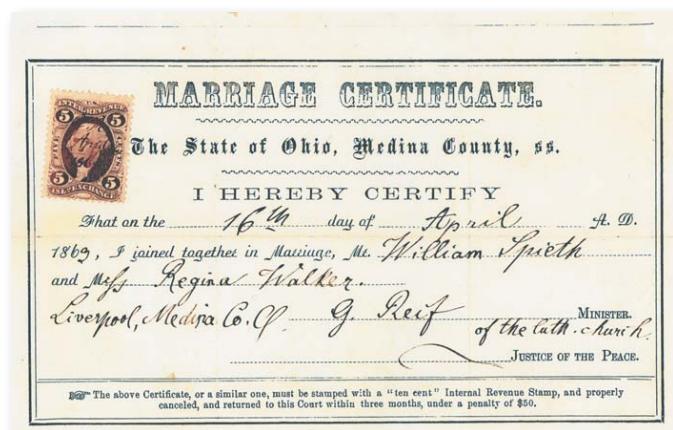 U.S.
INTER. REVENUE
5 5
FIVE CENTS
5 5
INL. EXCHANGE
MARRIAGE CERTIFICATE.
The State of Ohio, Medina County, ss.
I HEREBY CERTIFY
That on the 16th day of April A. D.
1869, I joined together in Marriage, Mr. William Spieth
and Miss Regina Walker.
Liverpool, Medina Co. O. G. Reif MINISTER.
of the luth. church.
JUSTICE OF THE PEACE.
The above Certificate, or a similar one, must be stamped with a "ten cent" Internal Revenue Stamp, and properly
canceled, and returned to this Court within three months, under a penalty of $50.